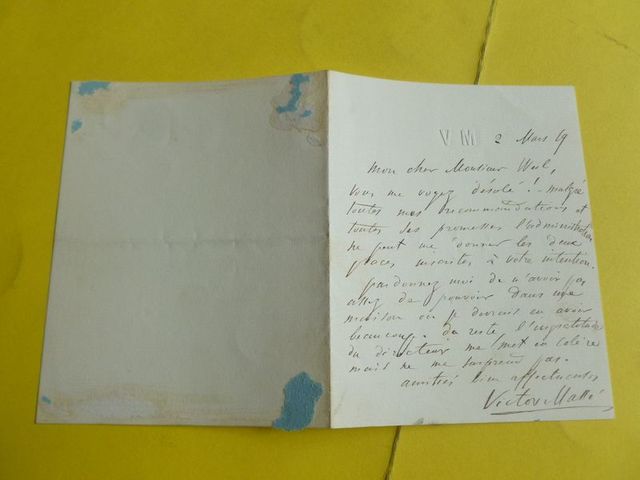 VM 2 Mars 69
Mon cher Monsieur Weil,
Vous me voyez désolé ! malgré
toutes mes recommandations et
toutes ses promesses l'administration
ne peut me donner les deux
places inscrites à votre intention.
pardonnez moi de n'avoir pas
assez de pouvoir dans une
maison où je devrais en avoir
beaucoup. Du reste l'ingratitude
du directeur me met en colère
mais ne me surprend pas.
amitiés bien affectueuses
Victor Massé